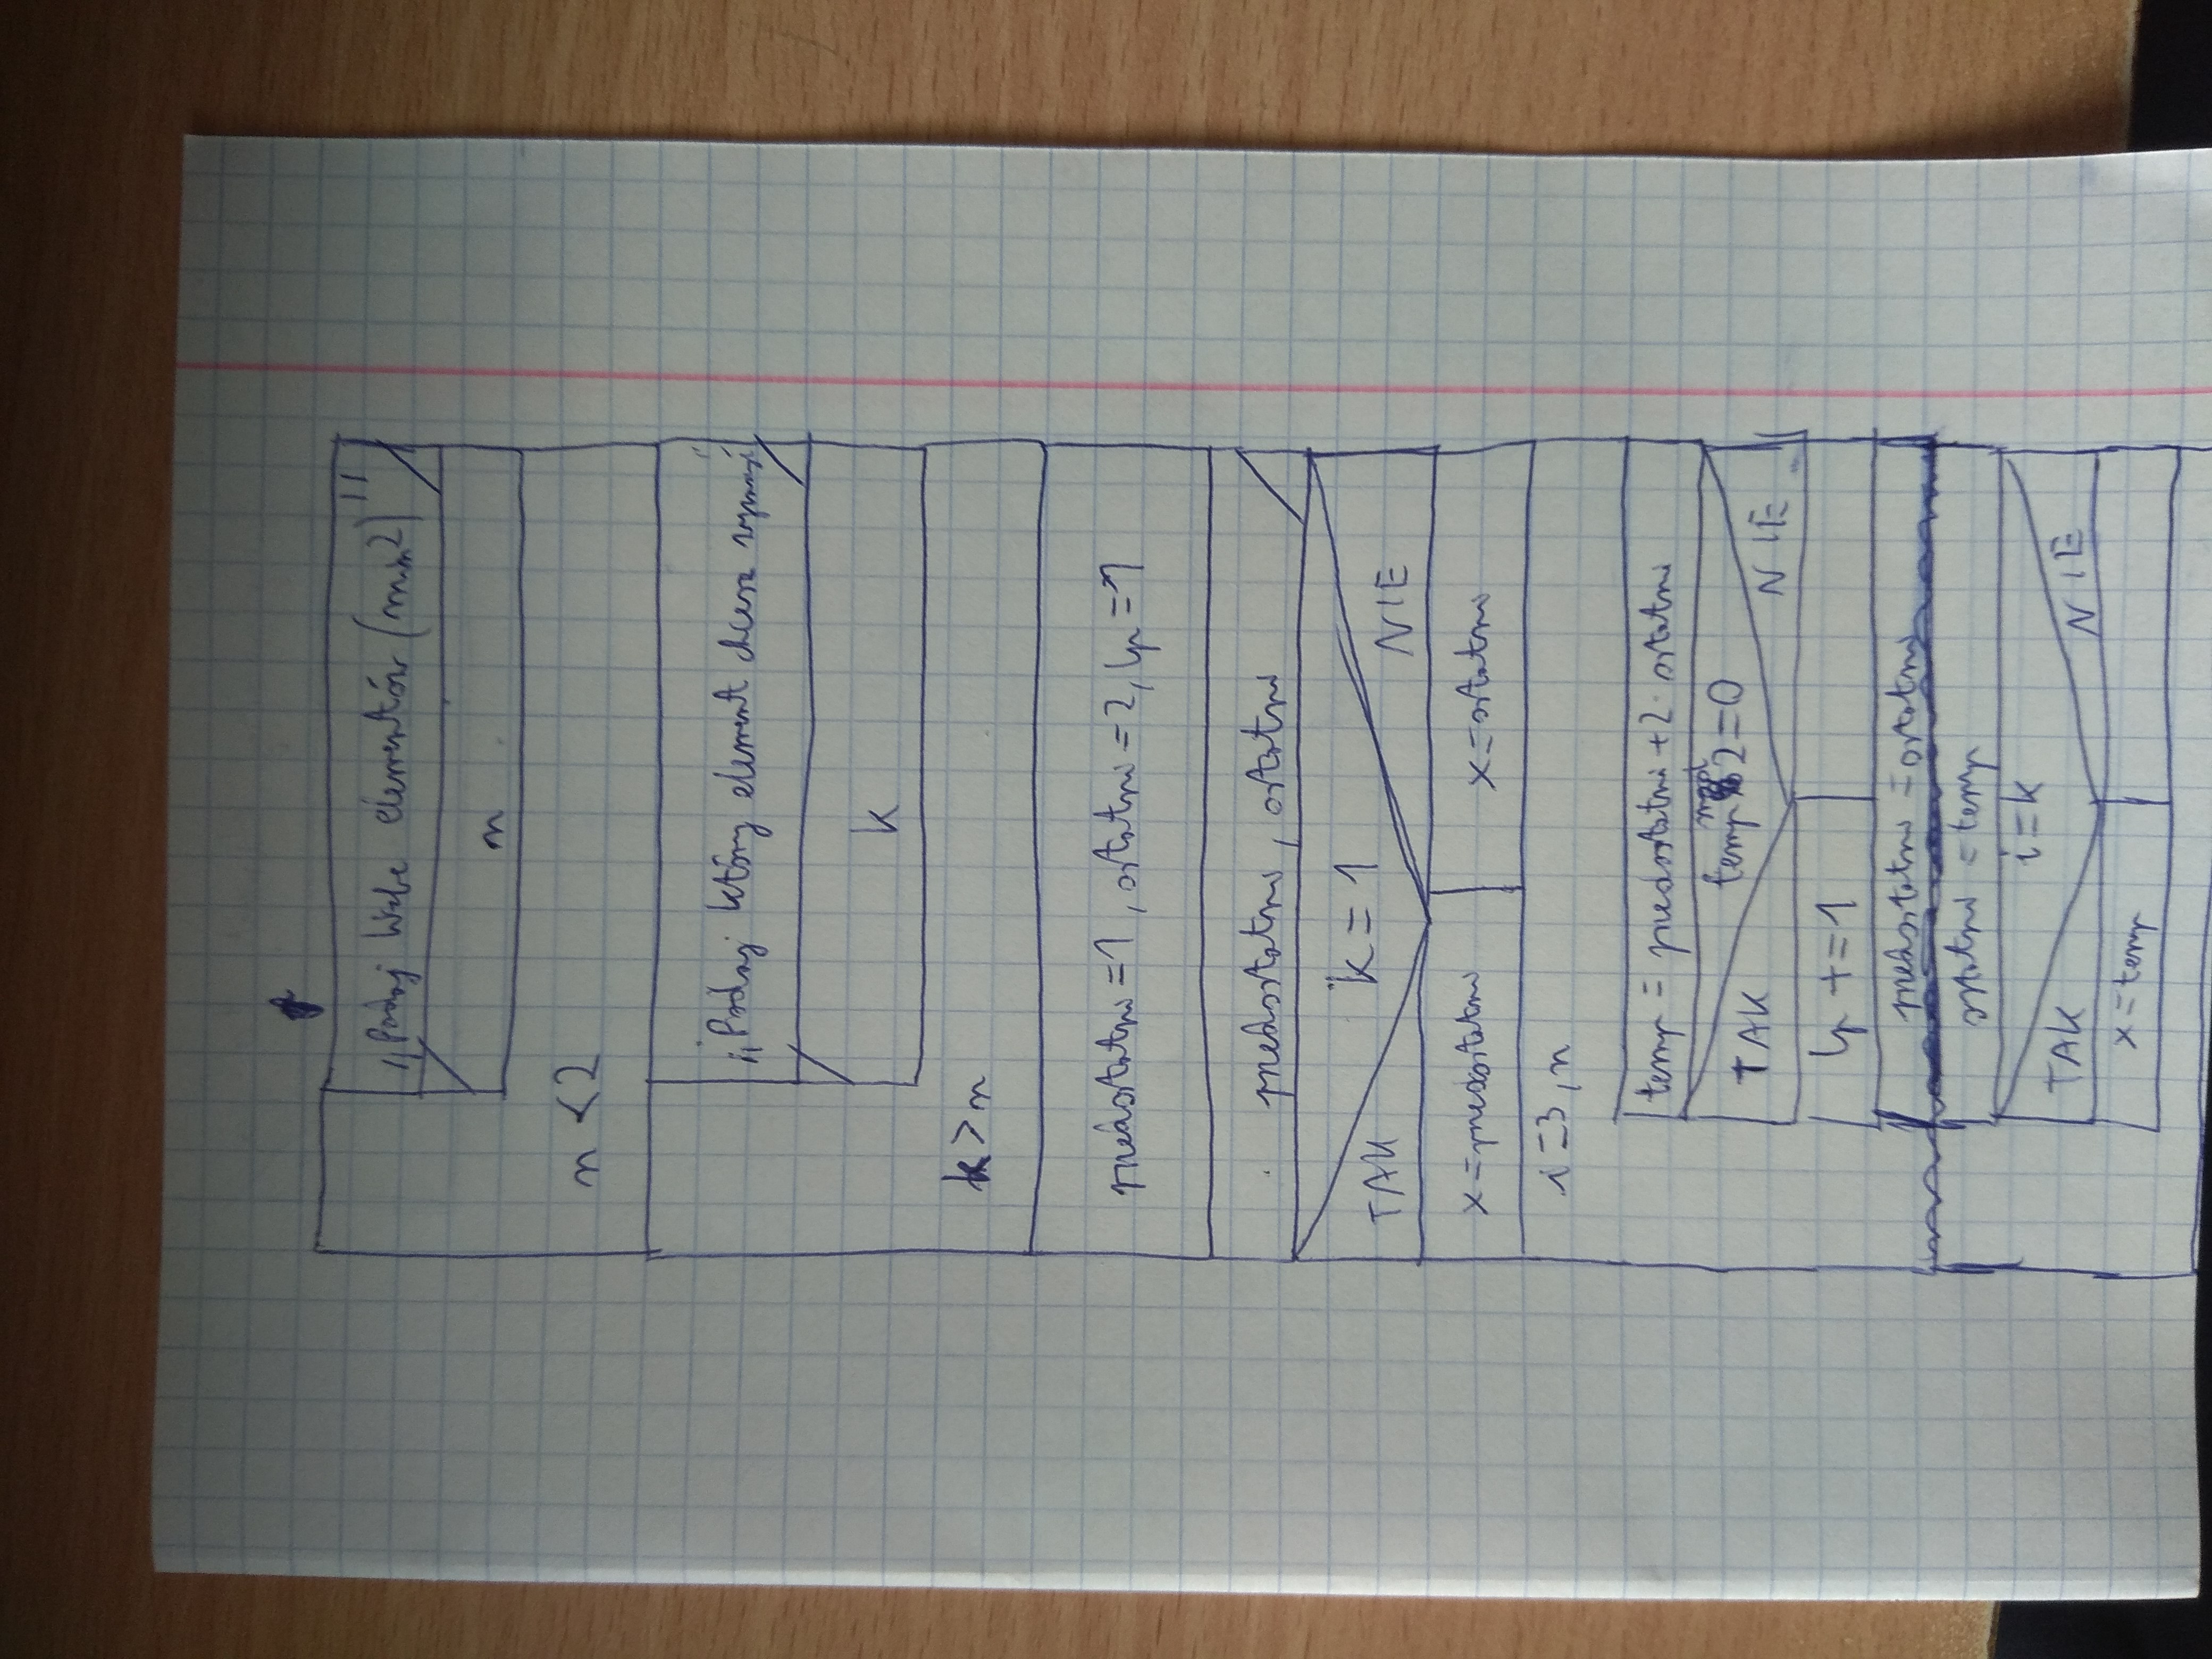 „Podaj liczbę elementów (min 2)"
n
n < 2
„Podaj który element chcesz"
k
k > n
przedostatni = 1, ostatni = 2, lp = 1
przedostatni, ostatni
k = 1
TAK NIE
x = przedostatni x = ostatni
i = 3, n
temp = przedostatni + 2 · ostatni
temp mod 2 = 0
TAK NIE
lp += 1
przedostatni = ostatni
ostatni = temp
i = k
TAK NIE
x = temp